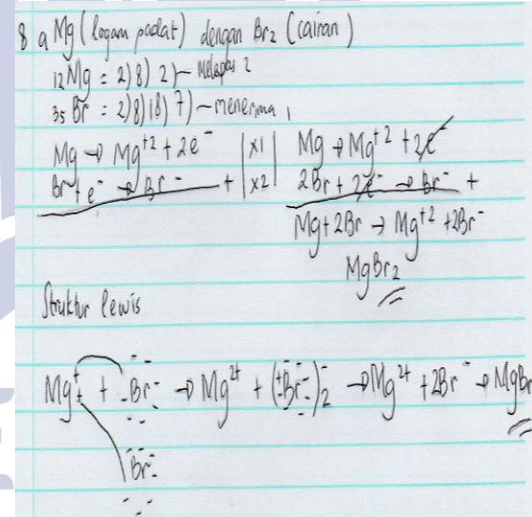 8 a Mg (logam padat) dengan Br2 (cairan)
12Mg = 2) 8) 2) ~ Melepas 2
35 Br = 2) 8) 18) 7) ~ menerima 1
Mg → Mg+2 + 2e- | x1 | Mg → Mg+2 + 2e-
Br + e- → Br- + | x2 | 2Br + 2e- → Br- +
Mg + 2Br → Mg+2 + 2Br-
MgBr2
Struktur lewis
Mg + Br → Mg2+ + (Br)2 → Mg2+ + 2Br- → MgBr
Br